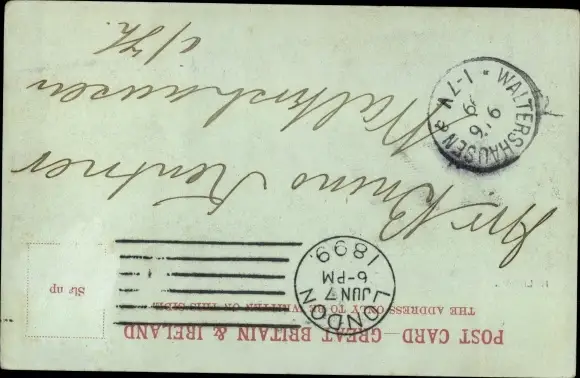 POST CARD—GREAT BRITAIN & IRELAND
THE ADDRESS ONLY TO BE WRITTEN ON THIS SIDE
LONDON
JUN 7
6-PM
1899
Bruno Kentner
Waltershausen
i/Th.
WALTERSHAUSEN
9 6
1-7 V